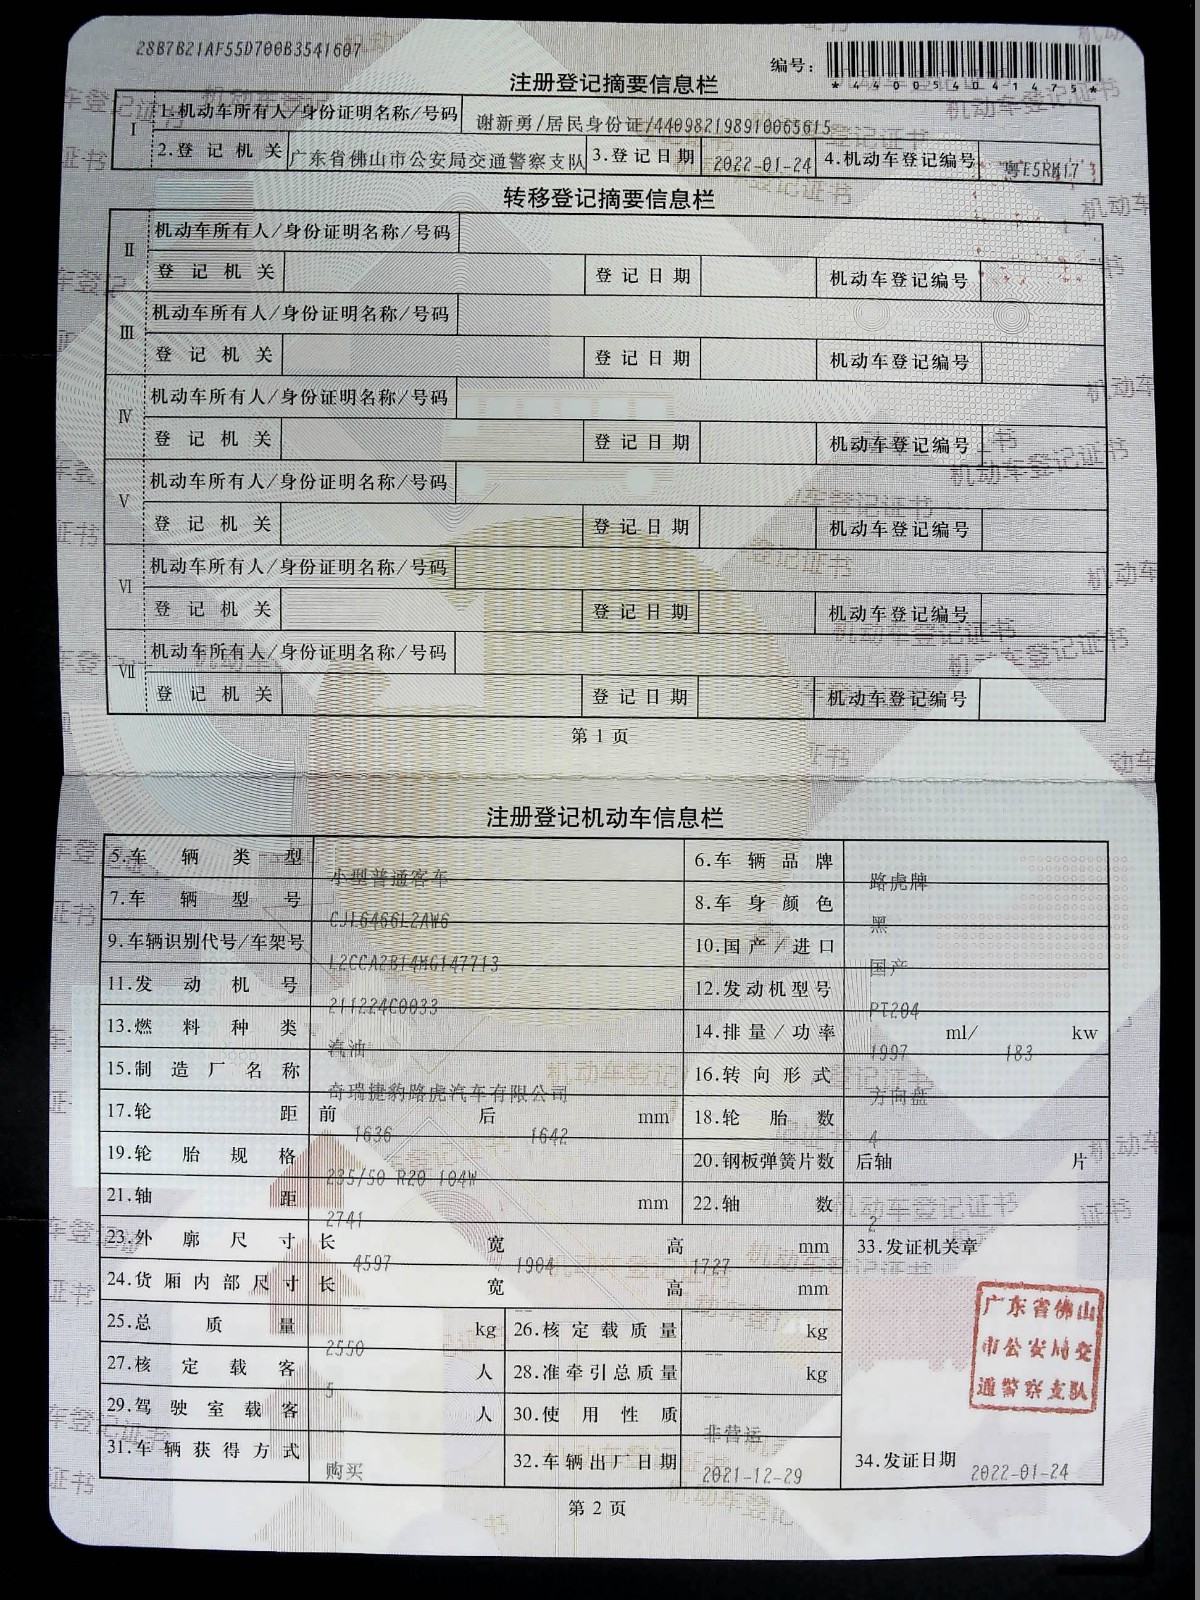 28B7B21AF55D700B3541607
编号：
*440054041475*
注册登记摘要信息栏
Ⅰ
1.机动车所有人/身份证明名称/号码 谢新勇/居民身份证/440982198910065615
2.登记机关 广东省佛山市公安局交通警察支队 3.登记日期 2022-01-24 4.机动车登记编号 粤E5RM17
转移登记摘要信息栏
Ⅱ
机动车所有人/身份证明名称/号码
登记机关 登记日期 机动车登记编号
Ⅲ
机动车所有人/身份证明名称/号码
登记机关 登记日期 机动车登记编号
Ⅳ
机动车所有人/身份证明名称/号码
登记机关 登记日期 机动车登记编号
Ⅴ
机动车所有人/身份证明名称/号码
登记机关 登记日期 机动车登记编号
Ⅵ
机动车所有人/身份证明名称/号码
登记机关 登记日期 机动车登记编号
Ⅶ
机动车所有人/身份证明名称/号码
登记机关 登记日期 机动车登记编号
第 1 页
注册登记机动车信息栏
5.车辆类型 小型普通客车 6.车辆品牌 路虎牌
7.车辆型号 CJL6466L2AW6 8.车身颜色 黑
9.车辆识别代号/车架号 L2CCA2B14MG147713 10.国产/进口 国产
11.发动机号 211224C0033 12.发动机型号 PT204
13.燃料种类 汽油 14.排量/功率 1997 ml/ 183 kw
15.制造厂名称 奇瑞捷豹路虎汽车有限公司 16.转向形式 方向盘
17.轮距 前 1636 后 1642 mm 18.轮胎数 4
19.轮胎规格 235/50 R20 104W 20.钢板弹簧片数 后轴 片
21.轴距 2741 mm 22.轴数 2
23.外廓尺寸 长 4597 宽 1904 高 1727 mm 33.发证机关章
24.货厢内部尺寸 长 宽 高 mm
25.总质量 2550 kg 26.核定载质量 kg
27.核定载客 5 人 28.准牵引总质量 kg
29.驾驶室载客 人 30.使用性质 非营运
31.车辆获得方式 购买 32.车辆出厂日期 2021-12-29 34.发证日期 2022-01-24
广东省佛山
市公安局交
通警察支队
第 2 页